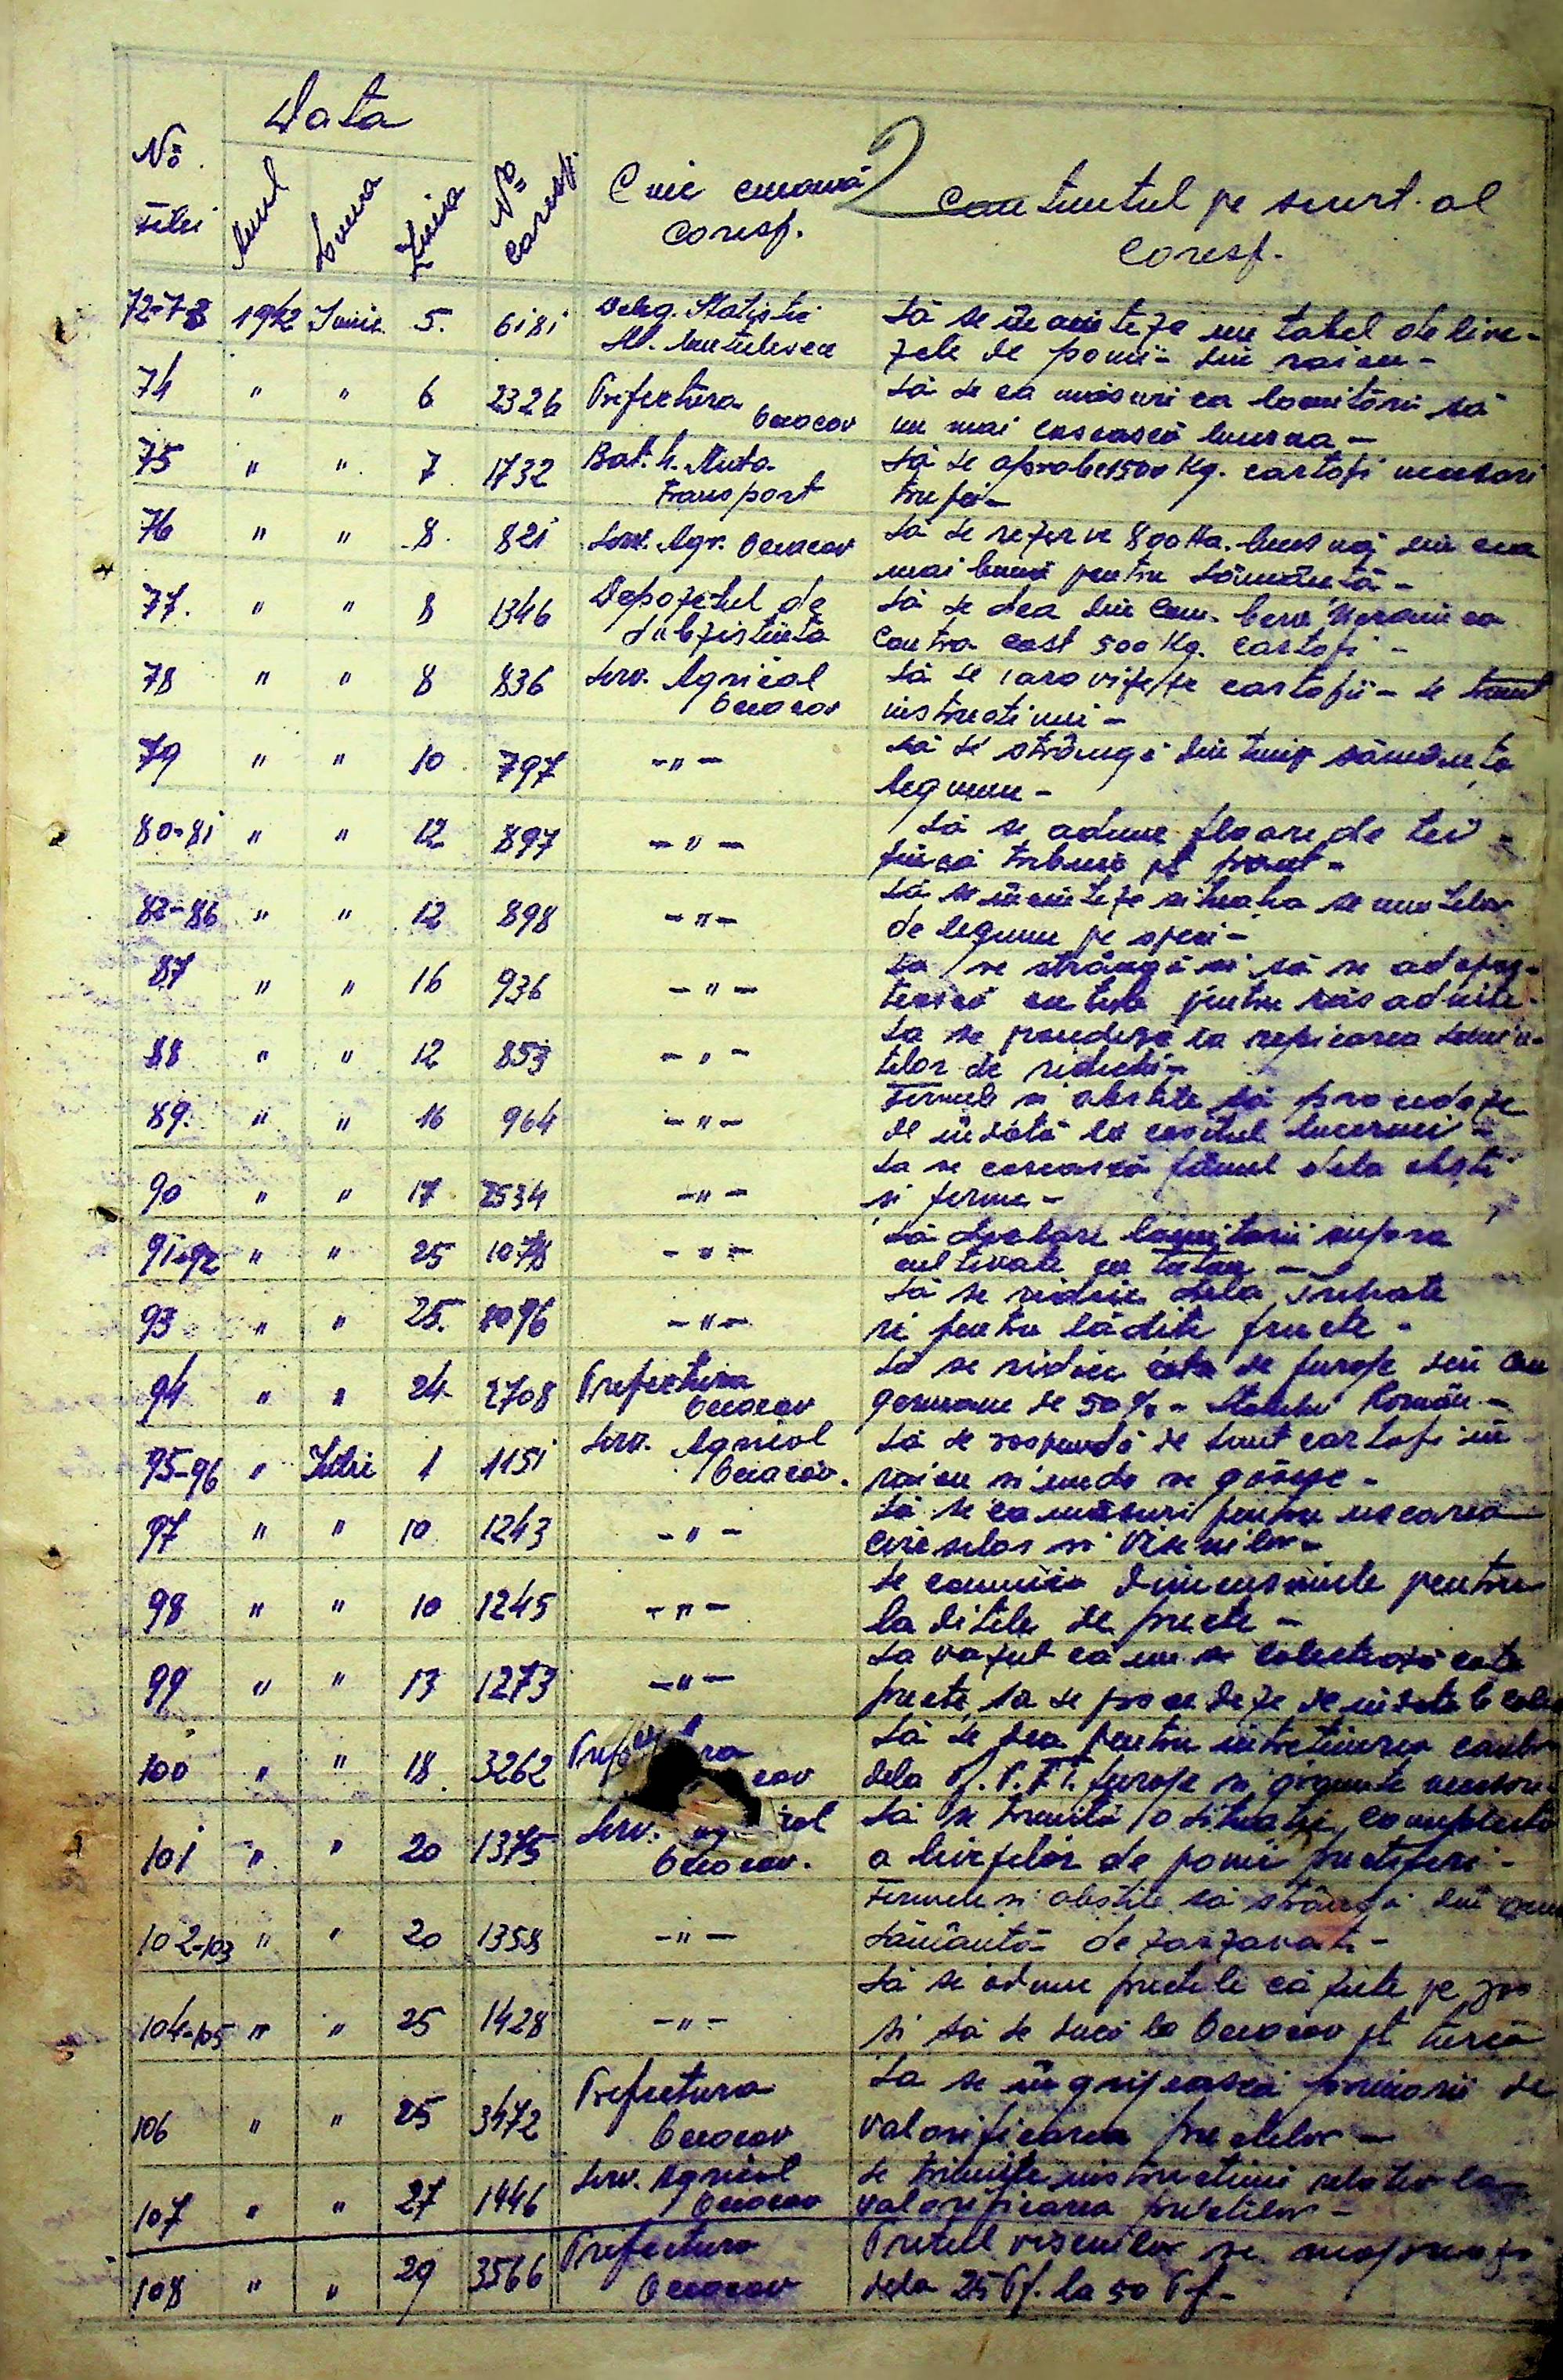 Data
No. filei
Anul Luna Ziua
No. coresp.
Cine emană
coresp.
2
Conținutul pe scurt al
coresp.
72-73 1942 Iunie 5. 6181 Deleg. Statistic
Să se înainteze un tabel de live-
zele de pomi din raion -
74 " " 6 2326 Prefectura
Oceacov
Să se ia măsuri ca locuitorii să
nu mai cosească lucerna -
75 " " 7 1732 Bat. 4. Auto.
transport
Să se aprobe 1500 Kg. cartofi necesari
trupei -
76 " " 8. 821 Serv. Agr. Oceacov
Să se rezerve 800 Ha. lucernă din cea
mai bună pentru sămânță -
77. " " 8 1346 Depozitul de
Subzistență
Să se dea din Com.
Contra cost 500 Kg. cartofi -
78 " " 8 836 Serv. Agricol
Oceacov
Să se iarovizeze cartofii - se
instrucțiuni -
79 " " 10 797 -"-
Să se strângă din timp sămânța
legume -
80-81 " " 12 897 -"-
Să se adune floare de tei
fiind că trebuie pt front -
82-86 " " 12 898 -"-
Să se înainteze situația semințelor
de legume pe specii -
87 " " 16 936 -"-
Să se strângă și să se adăpos-
tească pentru răsadnițe -
88 " " 12 853 -"-
Să se procedeze la repicarea semin-
țelor de ridichi -
89. " " 16 964 -"-
Fermele și obștile să procedeze
de îndată la cositul lucernei -
90 " " 17 2534 -"-
Să se cosească fânul dela obști
și ferme -
91-92 " " 25 1078 -"-
Să declare locuitorii supraf.
cultivate cu tutun -
93 " " 25. 1096 -"-
Să se ridice dela
și pentru lădițe fructe -
94 " " 24 2708 Prefectura
Oceacov
Să se ridice cota de furaje din
germane de 50% - Statului Român -
95-96 " Iulie 1 1151 Serv. Agricol
Oceacov.
Să se răspundă de sunt cartofi în
raion și unde se găsesc -
97 " " 10 1243 -"-
Să se ia măsuri pentru uscarea
cireșelor și vișinilor -
98 " " 10 1245 -"-
Se comunică dimensiunile pentru
lădițele de fructe -
99 " " 13 1273 -"-
S'a văzut că nu se colectează cota
fructe, să se procedeze de îndată la
100 " " 18 3262
Să se dea pentru întreținerea cailor
dela furaje și grăunțe necesare
101 " " 20 1375 Serv.
Oceacov.
Să se trimită o situație complectă
a livezilor de pomi fructiferi -
102-103 " " 20 1358 -"-
Fermele și obștile să strângă din
sămânță de zarzavat -
104-105 " " 25 1428 -"-
Să se adune fructele căzute pe jos
și să se ducă la Oceacov pt țuică
106 " " 25 3472 Prefectura
Oceacov
Să se îngrijească primarii de
valorificarea fructelor -
107 " " 27 1446 Serv. Agricol
Oceacov
Se trimite instrucțiuni relativ la
valorificarea fructelor -
108 " " 29 3566 Prefectura
Oceacov
Prețul vișinilor se
dela 25 Pf. la 50 Pf -